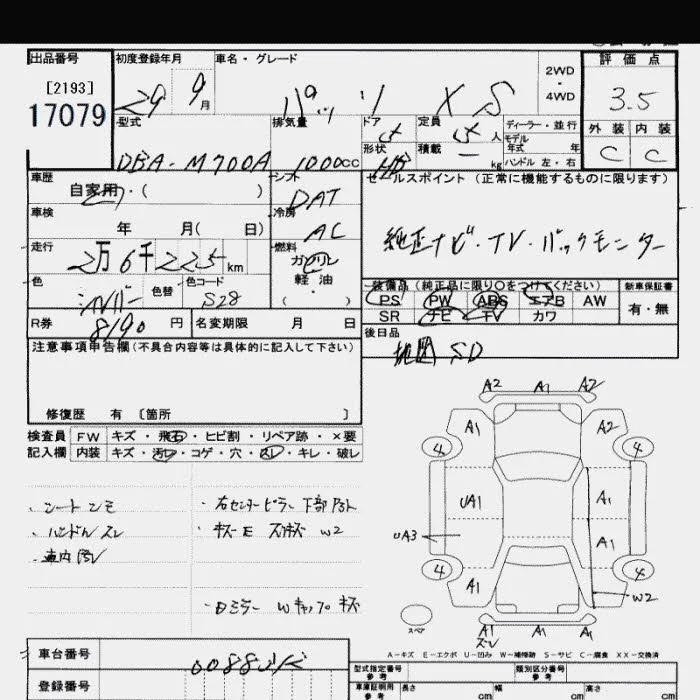 出品番号 初度登録年月 車名・グレード 評価点
[2193]
17079
29 9月 パッソ X S
2WD ・ 4WD
3.5
型式 排気量 ドア 定員 人 ディーラー・並行
モデル年式 年
ハンドル 左・右
外装 内装
C C
形状 積載 kg
DBA-M700A 1000cc HB
車歴 シフト セールスポイント (正常に機能するものに限ります)
自家用・( ) DAT
車検 冷房
年 月( 日) AC
純正ナビ・TV・バックモニター
走行 燃料
2万6千225km ガソリン
軽油
・
( )
色 色替 色コード
シルバー S28
装備品 (純正品に限り○をつけてください) 新車保証書
PS PW ABS エアB AW 有・無
SR ナビ TV カワ
R券 8190円 名変期限 月 日
後日品
地図 SD
注意事項申告欄(不具合内容等は具体的に記入して下さい)
修復歴 有 〔箇所 〕
検査員 FW キズ・飛石・ヒビ割・リペア跡・×要
記入欄 内装 キズ・汚レ・コゲ・穴・スレ・キレ・破レ
・ハンドルスレ
・右センターピラー下部
W2
A2 A1 A2
A1 A2
4 4
UA1 A1
UA3 A1
4 4
A1 W2
A1 A1 A1
スレ
スペア
A-キズ E-エクボ U-凹み W-補修跡 S-サビ C-腐食 XX-交換済
車台番号
型式指定番号 類別区分番号
参考 参考
登録番号
車庫証明用 長さ cm 幅 cm 高さ cm
参考